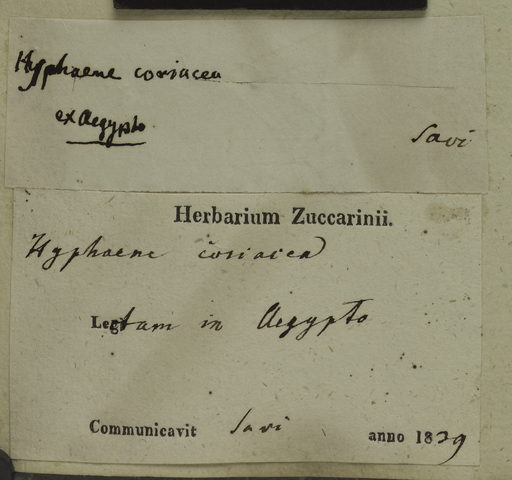 Hyphaene coriacea
ex Aegypto
Savi
Herbarium Zuccarinii.
Hyphaene coriacea
Lectam in Aegypto
Communicavit Savi anno 1839